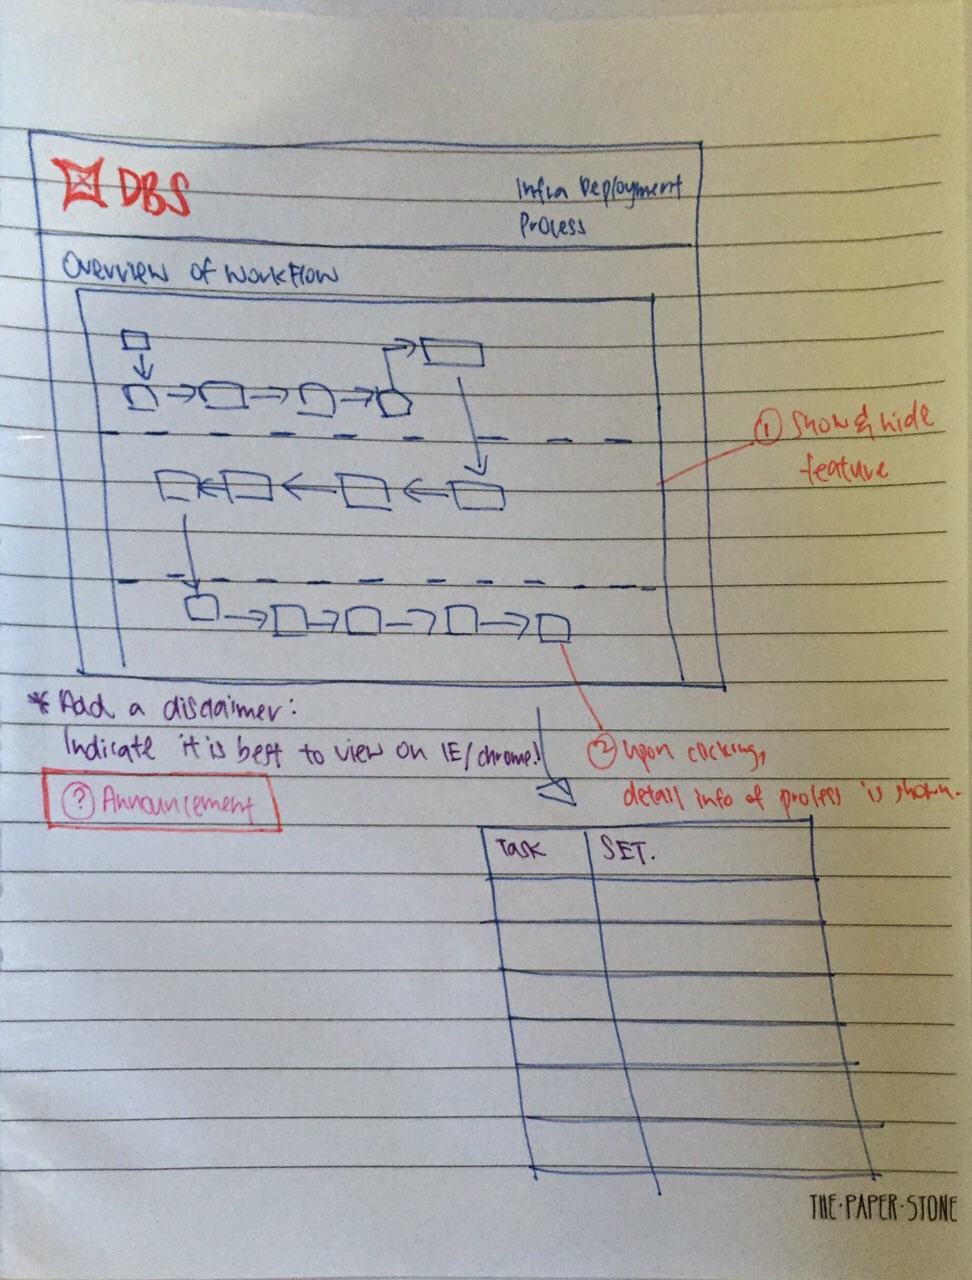 DBS
Infra Deployment
Process
Overview of Workflow
① Show & hide
feature
* Add a disclaimer:
Indicate it is best to view on IE/chrome!
② Upon clicking,
detail info of process is shown.
? Announcement
Task SET.
THE·PAPER·STONE